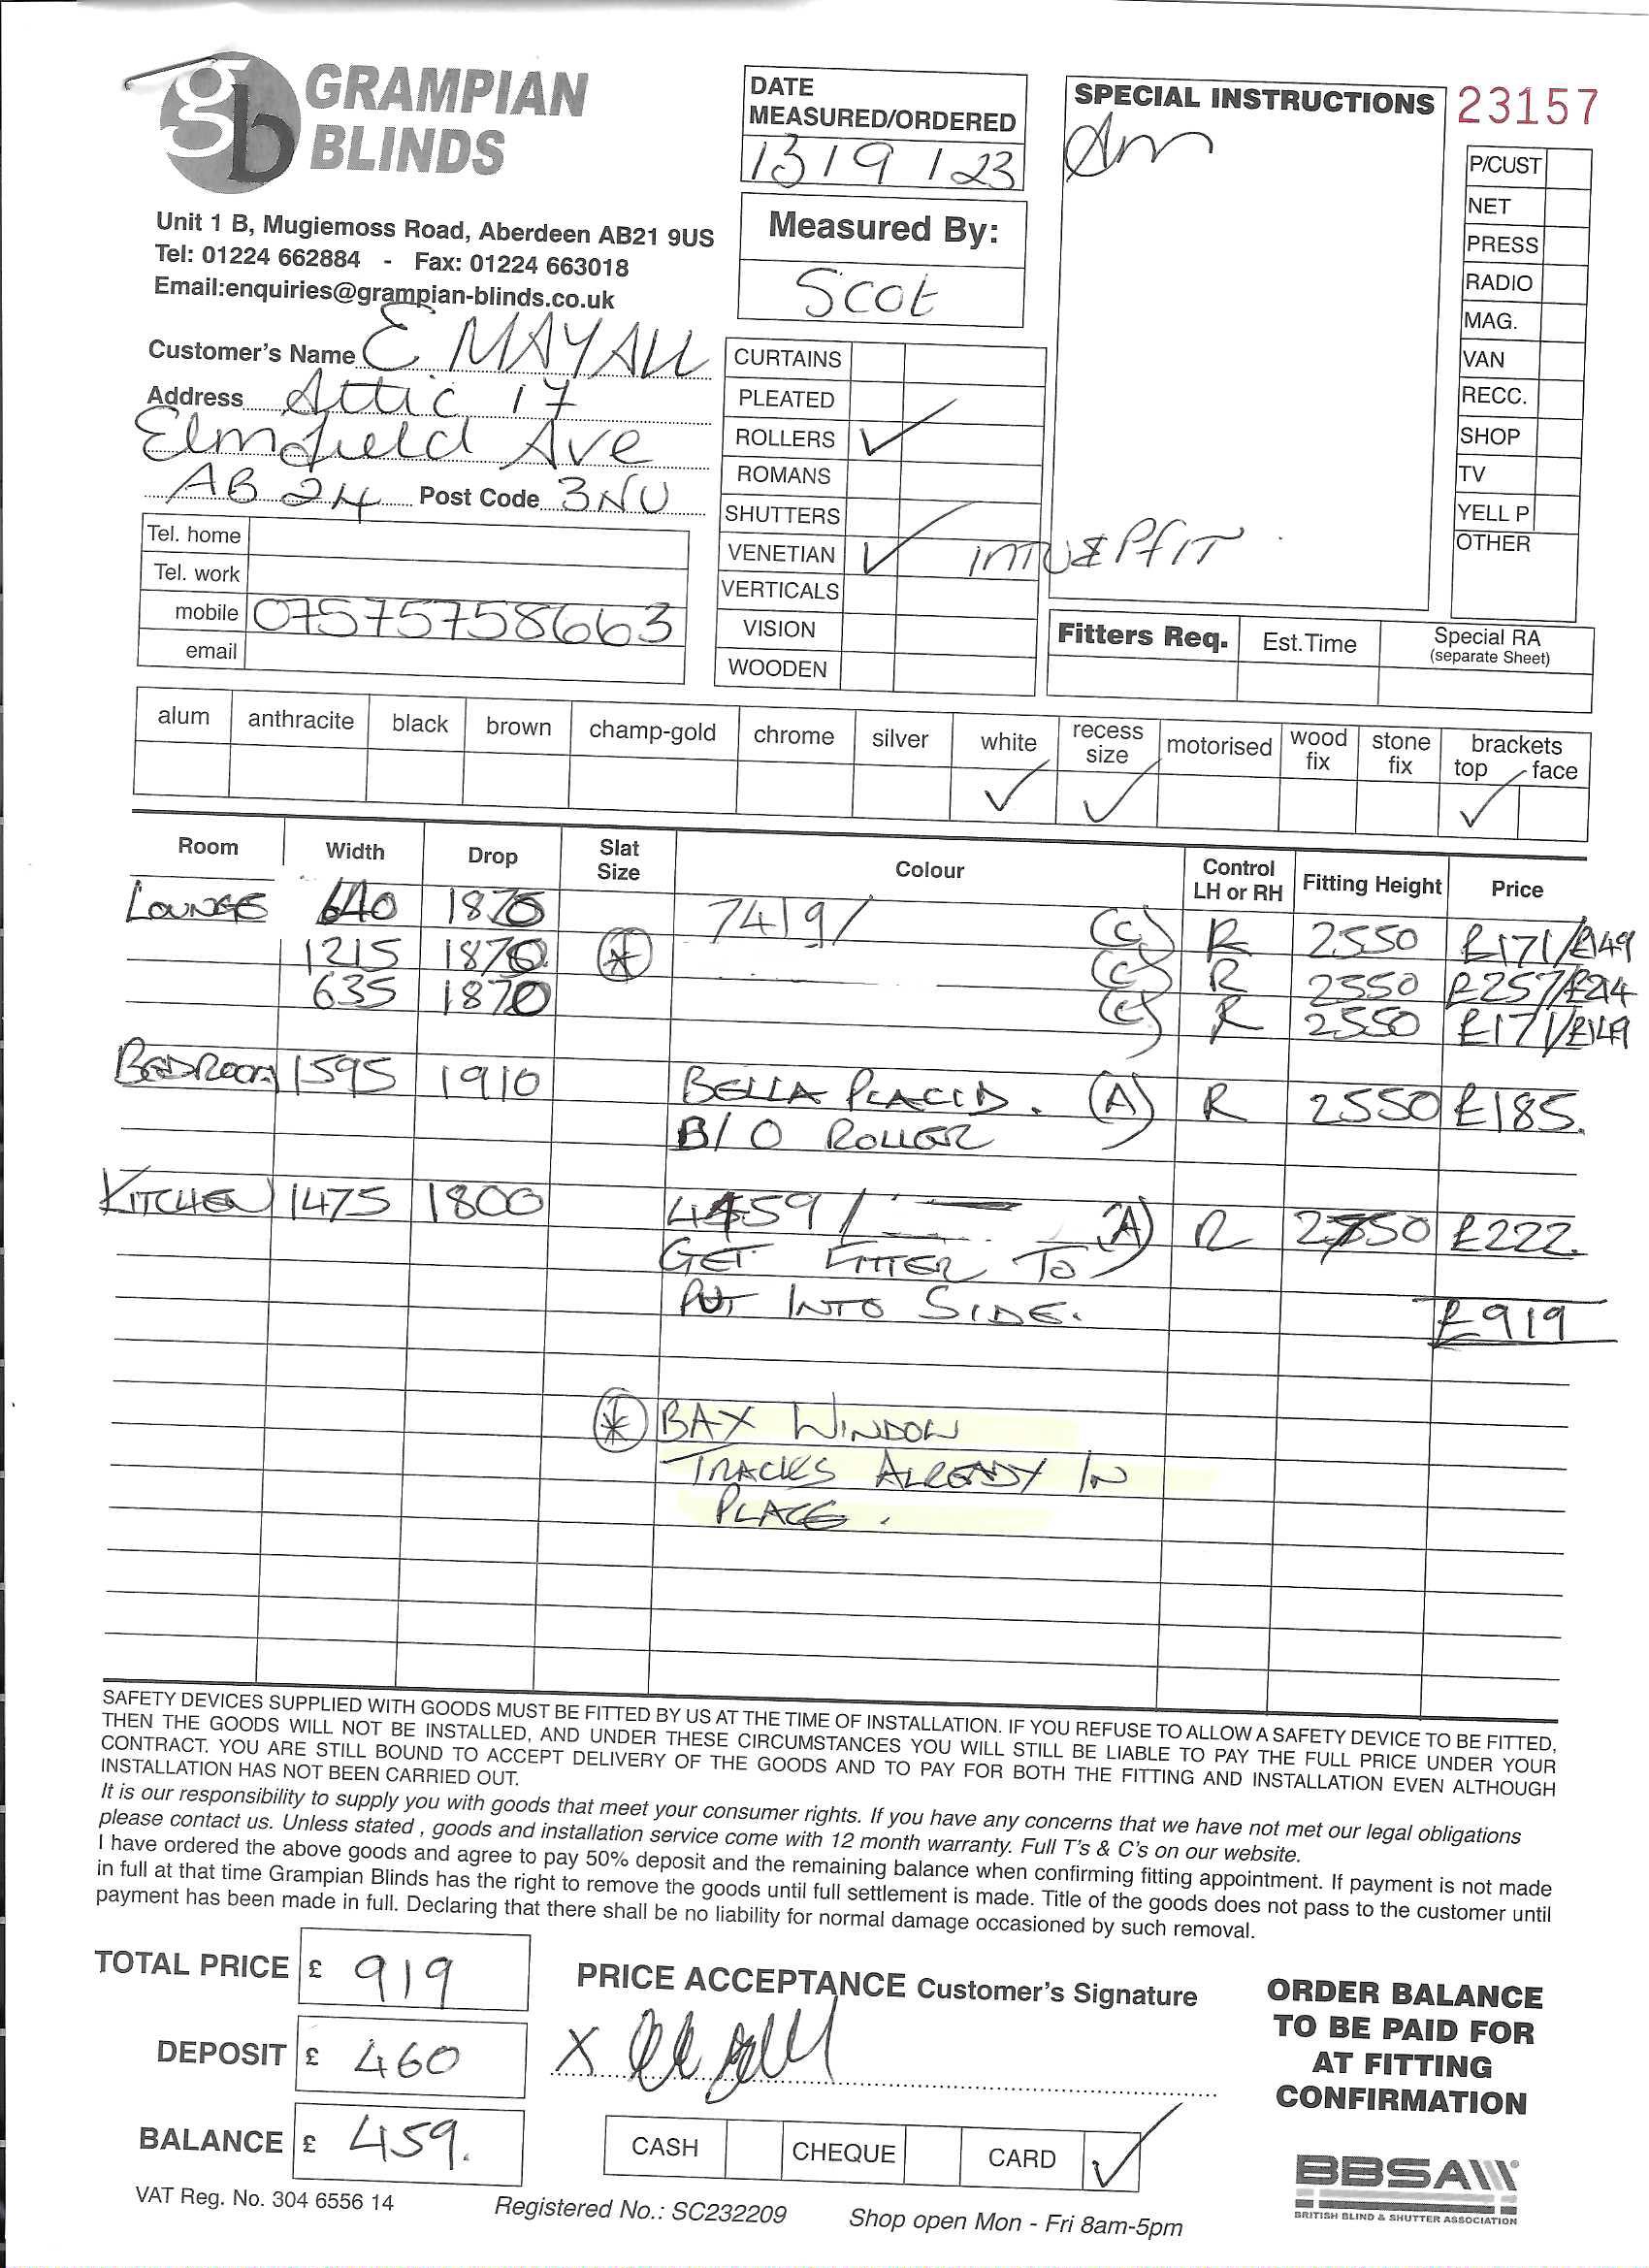 gb GRAMPIAN
BLINDS
Unit 1 B, Mugiemoss Road, Aberdeen AB21 9US
Tel: 01224 662884 - Fax: 01224 663018
Email:enquiries@grampian-blinds.co.uk
Customer's Name E MAYALL
Address Attic 17
Elmfield Ave
AB 24 Post Code 3NU
Tel. home
Tel. work
mobile 07575758663
email
DATE
MEASURED/ORDERED
13/9/23
Measured By:
Scot
CURTAINS
PLEATED
ROLLERS ✓
ROMANS
SHUTTERS
VENETIAN ✓ INTU & PfIT
VERTICALS
VISION
WOODEN
SPECIAL INSTRUCTIONS
Am
23157
P/CUST
NET
PRESS
RADIO
MAG.
VAN
RECC.
SHOP
TV
YELL P
OTHER
Fitters Req. Est.Time Special RA
(separate Sheet)
alum anthracite black brown champ-gold chrome silver white recess size motorised wood fix stone fix brackets top face
✓ ✓ ✓
Room Width Drop Slat Size Colour Control LH or RH Fitting Height Price
LOUNGE 640 1870 7419/ (C) R 2550 £171/£149
1215 1870 * (C) R 2550 £257/£214
635 1870 (C) R 2550 £171/£149
BEDROOM 1595 1910 BELLA PLACID. (A) R 2550 £185.
B/O ROLLER
KITCHEN 1475 1800 4459/ (A) R 2550 £222.
GET FITTER TO
PUT INTO SIDE.
£919
* BAX WINDOW
TRACKS ALREADY IN
PLACE.
SAFETY DEVICES SUPPLIED WITH GOODS MUST BE FITTED BY US AT THE TIME OF INSTALLATION. IF YOU REFUSE TO ALLOW A SAFETY DEVICE TO BE FITTED,
THEN THE GOODS WILL NOT BE INSTALLED, AND UNDER THESE CIRCUMSTANCES YOU WILL STILL BE LIABLE TO PAY THE FULL PRICE UNDER YOUR
CONTRACT. YOU ARE STILL BOUND TO ACCEPT DELIVERY OF THE GOODS AND TO PAY FOR BOTH THE FITTING AND INSTALLATION EVEN ALTHOUGH
INSTALLATION HAS NOT BEEN CARRIED OUT.
It is our responsibility to supply you with goods that meet your consumer rights. If you have any concerns that we have not met our legal obligations
please contact us. Unless stated , goods and installation service come with 12 month warranty. Full T's & C's on our website.
I have ordered the above goods and agree to pay 50% deposit and the remaining balance when confirming fitting appointment. If payment is not made
in full at that time Grampian Blinds has the right to remove the goods until full settlement is made. Title of the goods does not pass to the customer until
payment has been made in full. Declaring that there shall be no liability for normal damage occasioned by such removal.
TOTAL PRICE £ 919
DEPOSIT £ 460
BALANCE £ 459.
PRICE ACCEPTANCE Customer's Signature
X
CASH CHEQUE CARD ✓
ORDER BALANCE
TO BE PAID FOR
AT FITTING
CONFIRMATION
BBSA
BRITISH BLIND & SHUTTER ASSOCIATION
VAT Reg. No. 304 6556 14
Registered No.: SC232209
Shop open Mon - Fri 8am-5pm